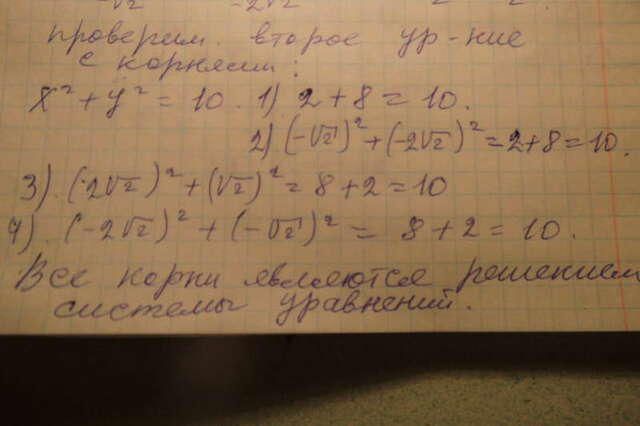 √2 -2√2
проверим второе ур-ние
с корнями:
x² + y² = 10. 1) 2 + 8 = 10.
2) (-√2)² + (-2√2)² = 2+8=10.
3). (2√2)² + (√2)² = 8 + 2 = 10
4). (-2√2)² + (-√2)² = 8 + 2 = 10.
Все корни являются решением
системы уравнений.